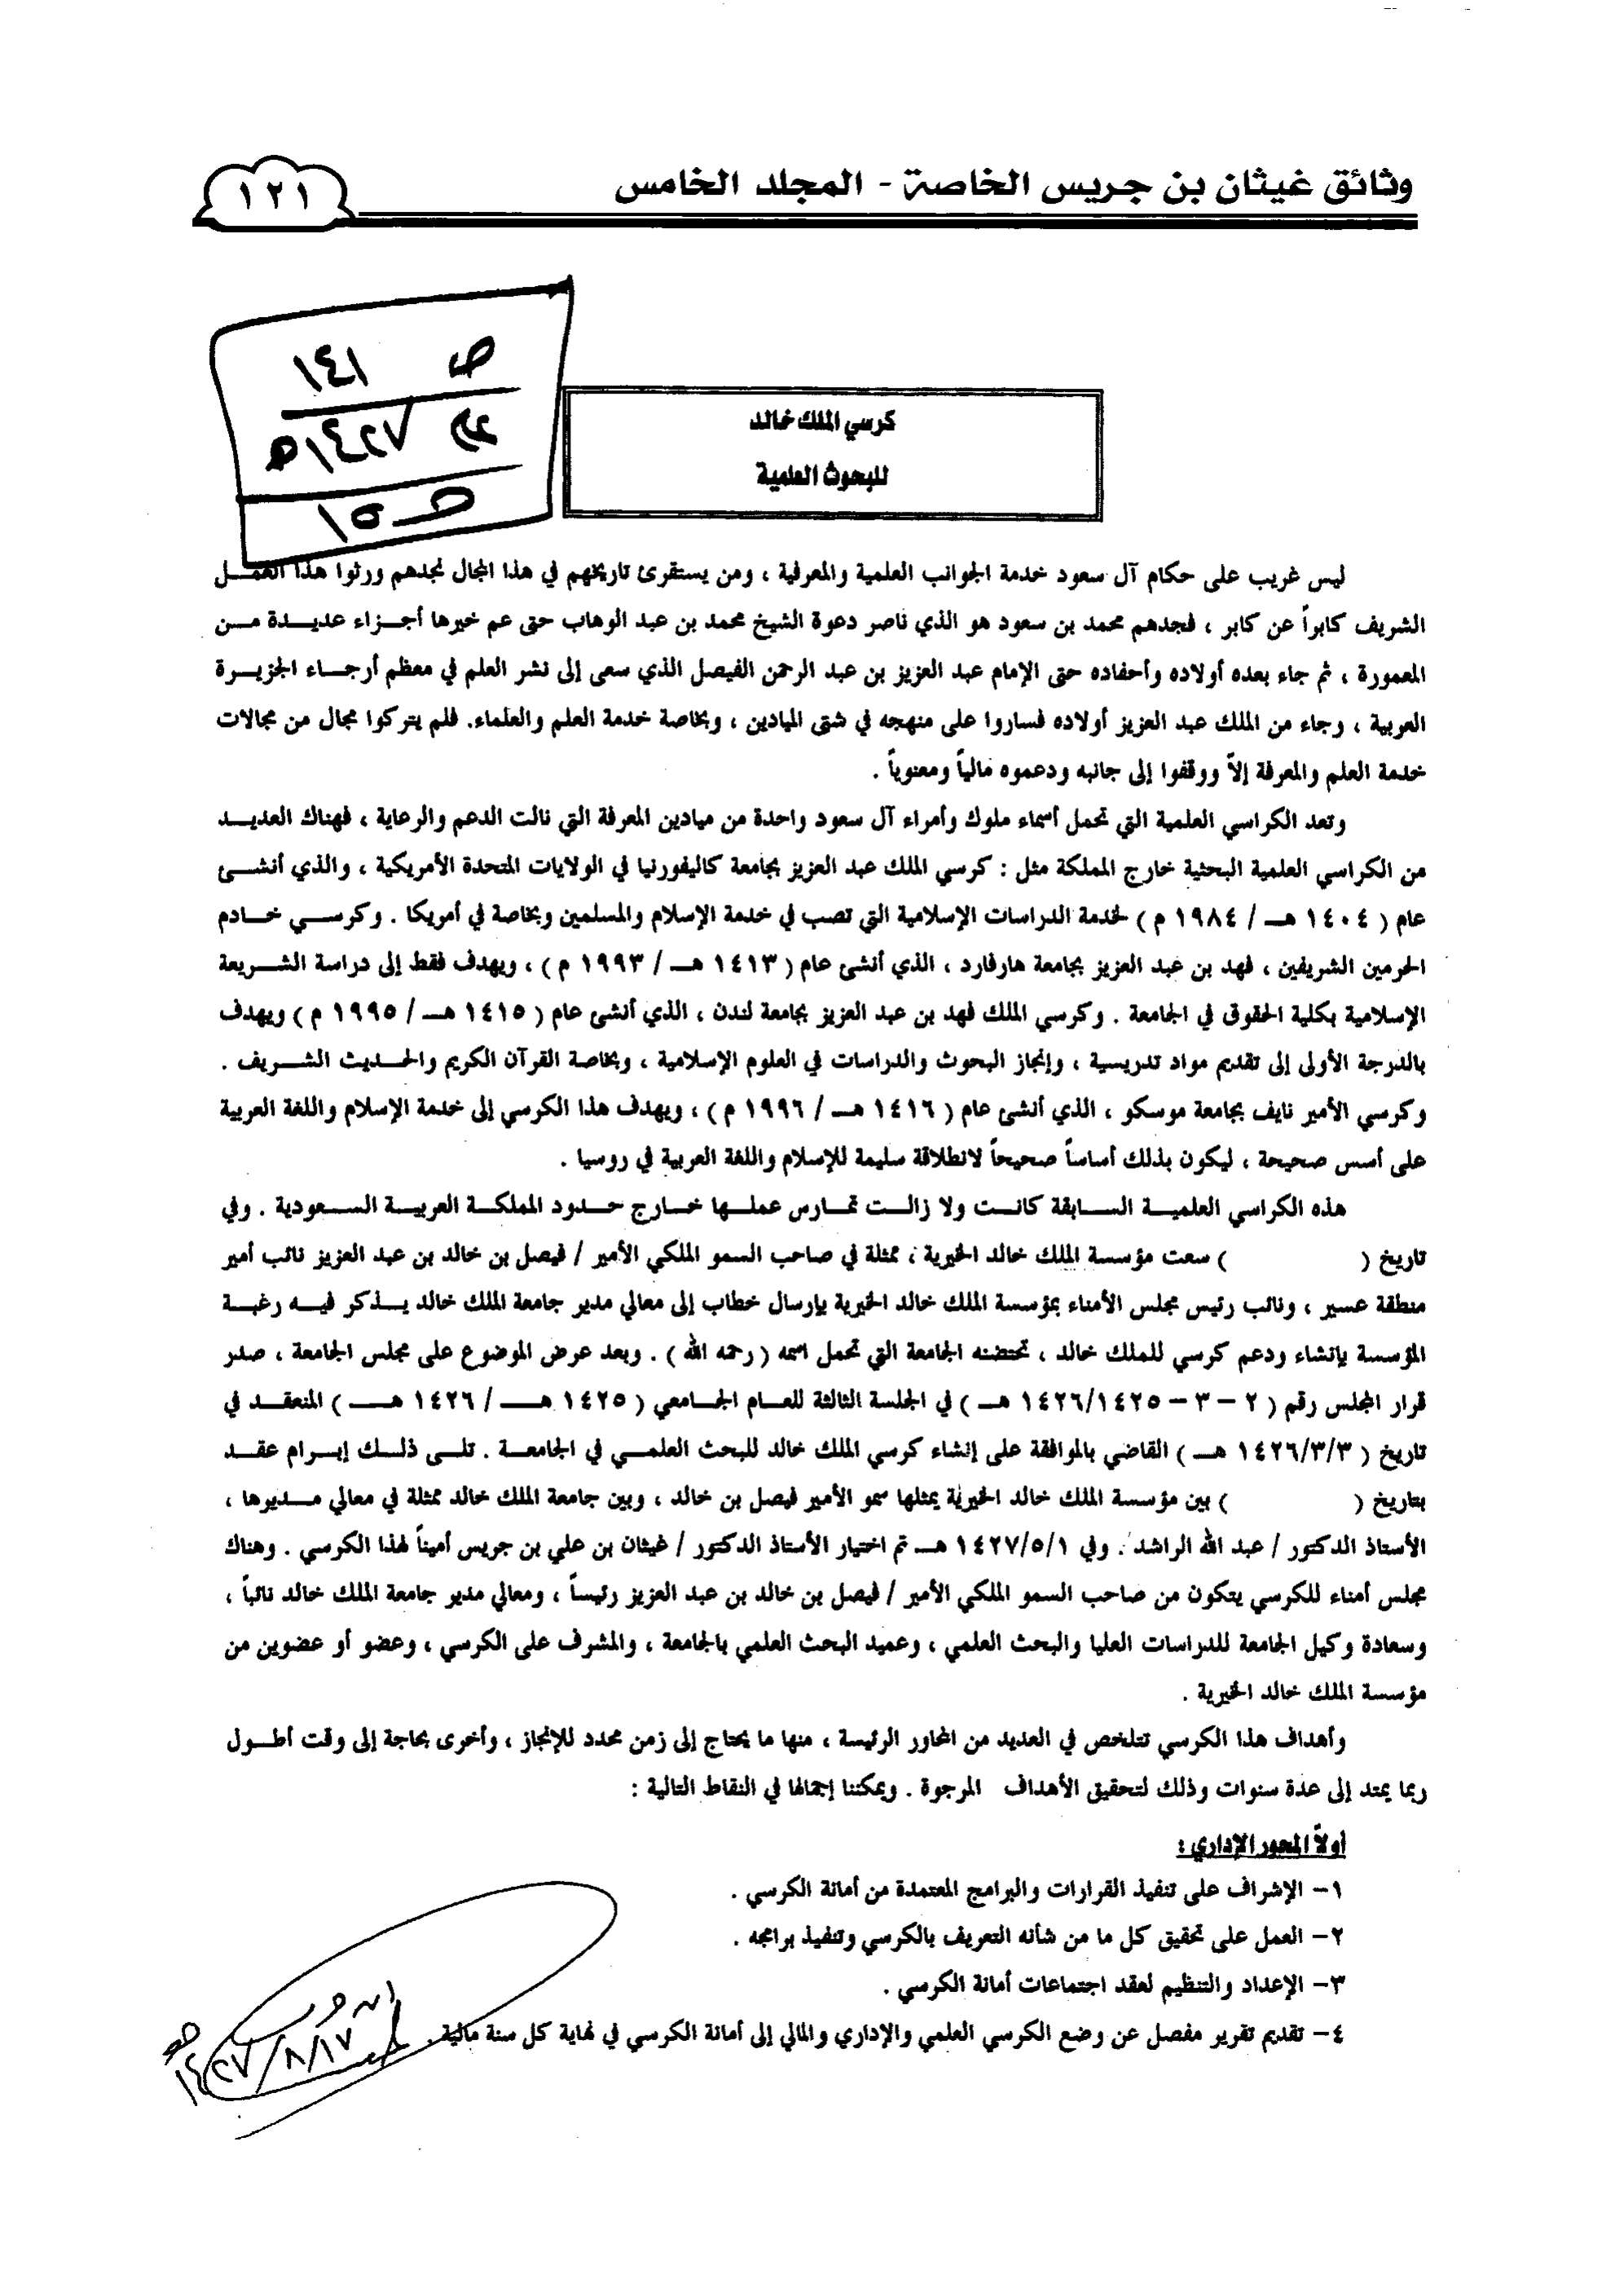 وثائق غيثان بن جريس الخاصة - المجلد الخامس
١٢١
ص ١٤١
١٤٢٧هـ
كرسي الملك خالد
للبحوث العلمية
ليس غريب على حكام آل سعود خدمة الجوانب العلمية والمعرفية ، ومن يستقرئ تاريخهم في هذا المجال نجدهم ورثوا هذا العمـل
الشريف كابراً عن كابر ، فجدهم محمد بن سعود هو الذي ناصر دعوة الشيخ محمد بن عبد الوهاب حتى عم خيرها أجـزاء عديـدة مـن
المعمورة ، ثم جاء بعده أولاده وأحفاده حتى الإمام عبد العزيز بن عبد الرحمن الفيصل الذي سعى إلى نشر العلم في معظم أرجـاء الجزيـرة
العربية ، وجاء من الملك عبد العزيز أولاده فساروا على منهجه في شتى الميادين ، وبخاصة خدمة العلم والعلماء. فلم يتركوا مجال من مجالات
خدمة العلم والمعرفة إلاّ ووقفوا إلى جانبه ودعموه مالياً ومعنوياً .
وتعد الكراسي العلمية التي تحمل أسماء ملوك وأمراء آل سعود واحدة من ميادين المعرفة التي نالت الدعم والرعاية ، فهناك العديـد
من الكراسي العلمية البحثية خارج المملكة مثل : كرسي الملك عبد العزيز بجامعة كاليفورنيا في الولايات المتحدة الأمريكية ، والذي أنشـئ
عام ( ١٤٠٤ هـ / ١٩٨٤ م ) لخدمة الدراسات الإسلامية التي تصب في خدمة الإسلام والمسلمين وبخاصة في أمريكا . وكرسـي خـادم
الحرمين الشريفين ، فهد بن عبد العزيز بجامعة هارفارد ، الذي أنشئ عام ( ١٤١٣ هـ / ١٩٩٣ م ) ، ويهدف فقط إلى دراسة الشـريعة
الإسلامية بكلية الحقوق في الجامعة . وكرسي الملك فهد بن عبد العزيز بجامعة لندن ، الذي أنشئ عام ( ١٤١٥ هـ / ١٩٩٥ م ) ويهدف
بالدرجة الأولى إلى تقديم مواد تدريسية ، وإنجاز البحوث والدراسات في العلوم الإسلامية ، وبخاصة القرآن الكريم والحـديث الشـريف .
وكرسي الأمير نايف بجامعة موسكو ، الذي أنشئ عام ( ١٤١٦ هـ / ١٩٩٦ م ) ، ويهدف هذا الكرسي إلى خدمة الإسلام واللغة العربية
على أسس صحيحة ، ليكون بذلك أساساً صحيحاً لانطلاقة سليمة للإسلام واللغة العربية في روسيا .
هذه الكراسي العلميـة السـابقة كانـت ولا زالـت تمـارس عملـها خـارج حـدود المملكـة العربيـة السـعودية . وفي
تاريخ ( ) سعت مؤسسة الملك خالد الخيرية ، ممثلة في صاحب السمو الملكي الأمير / فيصل بن خالد بن عبد العزيز نائب أمير
منطقة عسير ، ونائب رئيس مجلس الأمناء بمؤسسة الملك خالد الخيرية بإرسال خطاب إلى معالي مدير جامعة الملك خالد يـذكر فيـه رغبـة
المؤسسة بإنشاء ودعم كرسي للملك خالد ، تحتضنه الجامعة التي تحمل اسمه ( رحمه الله ) . وبعد عرض الموضوع على مجلس الجامعة ، صدر
قرار المجلس رقم ( ٢ – ٣ – ١٤٢٦/١٤٢٥ هـ ) في الجلسة الثالثة للعـام الجـامعي ( ١٤٢٥ هـ / ١٤٢٦ هـ ) المنعقـد في
تاريخ ( ١٤٢٦/٣/٣ هـ ) القاضي بالموافقة على إنشاء كرسي الملك خالد للبحث العلمـي في الجامعـة . تلـى ذلـك إبـرام عقـد
بتاريخ ( ) بين مؤسسة الملك خالد الخيرية يمثلها سمو الأمير فيصل بن خالد ، وبين جامعة الملك خالد ممثلة في معالي مـديرها ،
الأستاذ الدكتور / عبد الله الراشد . وفي ١٤٢٧/٥/١ هـ تم اختيار الأستاذ الدكتور / غيثان بن علي بن جريس أميناً لهذا الكرسي . وهناك
مجلس أمناء للكرسي يتكون من صاحب السمو الملكي الأمير / فيصل بن خالد بن عبد العزيز رئيساً ، ومعالي مدير جامعة الملك خالد نائباً ،
وسعادة وكيل الجامعة للدراسات العليا والبحث العلمي ، وعميد البحث العلمي بالجامعة ، والمشرف على الكرسي ، وعضو أو عضوين من
مؤسسة الملك خالد الخيرية .
وأهداف هذا الكرسي تتلخص في العديد من المحاور الرئيسة ، منها ما يحتاج إلى زمن محدد للإنجاز ، وأخرى بحاجة إلى وقت أطـول
ربما يمتد إلى عدة سنوات وذلك لتحقيق الأهداف المرجوة . ويمكننا إجمالها في النقاط التالية :
أولاً المحور الإداري :
١– الإشراف على تنفيذ القرارات والبرامج المعتمدة من أمانة الكرسي .
٢– العمل على تحقيق كل ما من شأنه التعريف بالكرسي وتنفيذ برامجه .
٣– الإعداد والتنظيم لعقد اجتماعات أمانة الكرسي .
٤– تقديم تقرير مفصل عن وضع الكرسي العلمي والإداري والمالي إلى أمانة الكرسي في نهاية كل سنة مالية .
١٤٢٧/٨/١٧ هـ